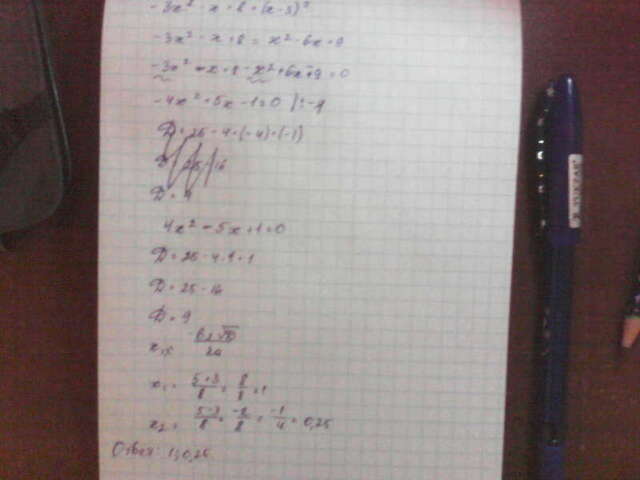 -3x² - x + 8 = (x - 3)²
-3x² - x + 8 = x² - 6x + 9
-3x² - x + 8 - x² + 6x + 9 = 0
-4x² + 5x - 1 = 0
D = 25 - 4 · (-4) · (-1)
D = 25 - 16
D = 9
4x² - 5x + 1 = 0
D = 25 - 4 · 4 · 1
D = 25 - 16
D = 9
x₁ = 5+3/8 = 8/8 = 1
x₂ = 5-3/8 = -2/8 = -1/4 = 0,25
Ответ: 1; 0,25